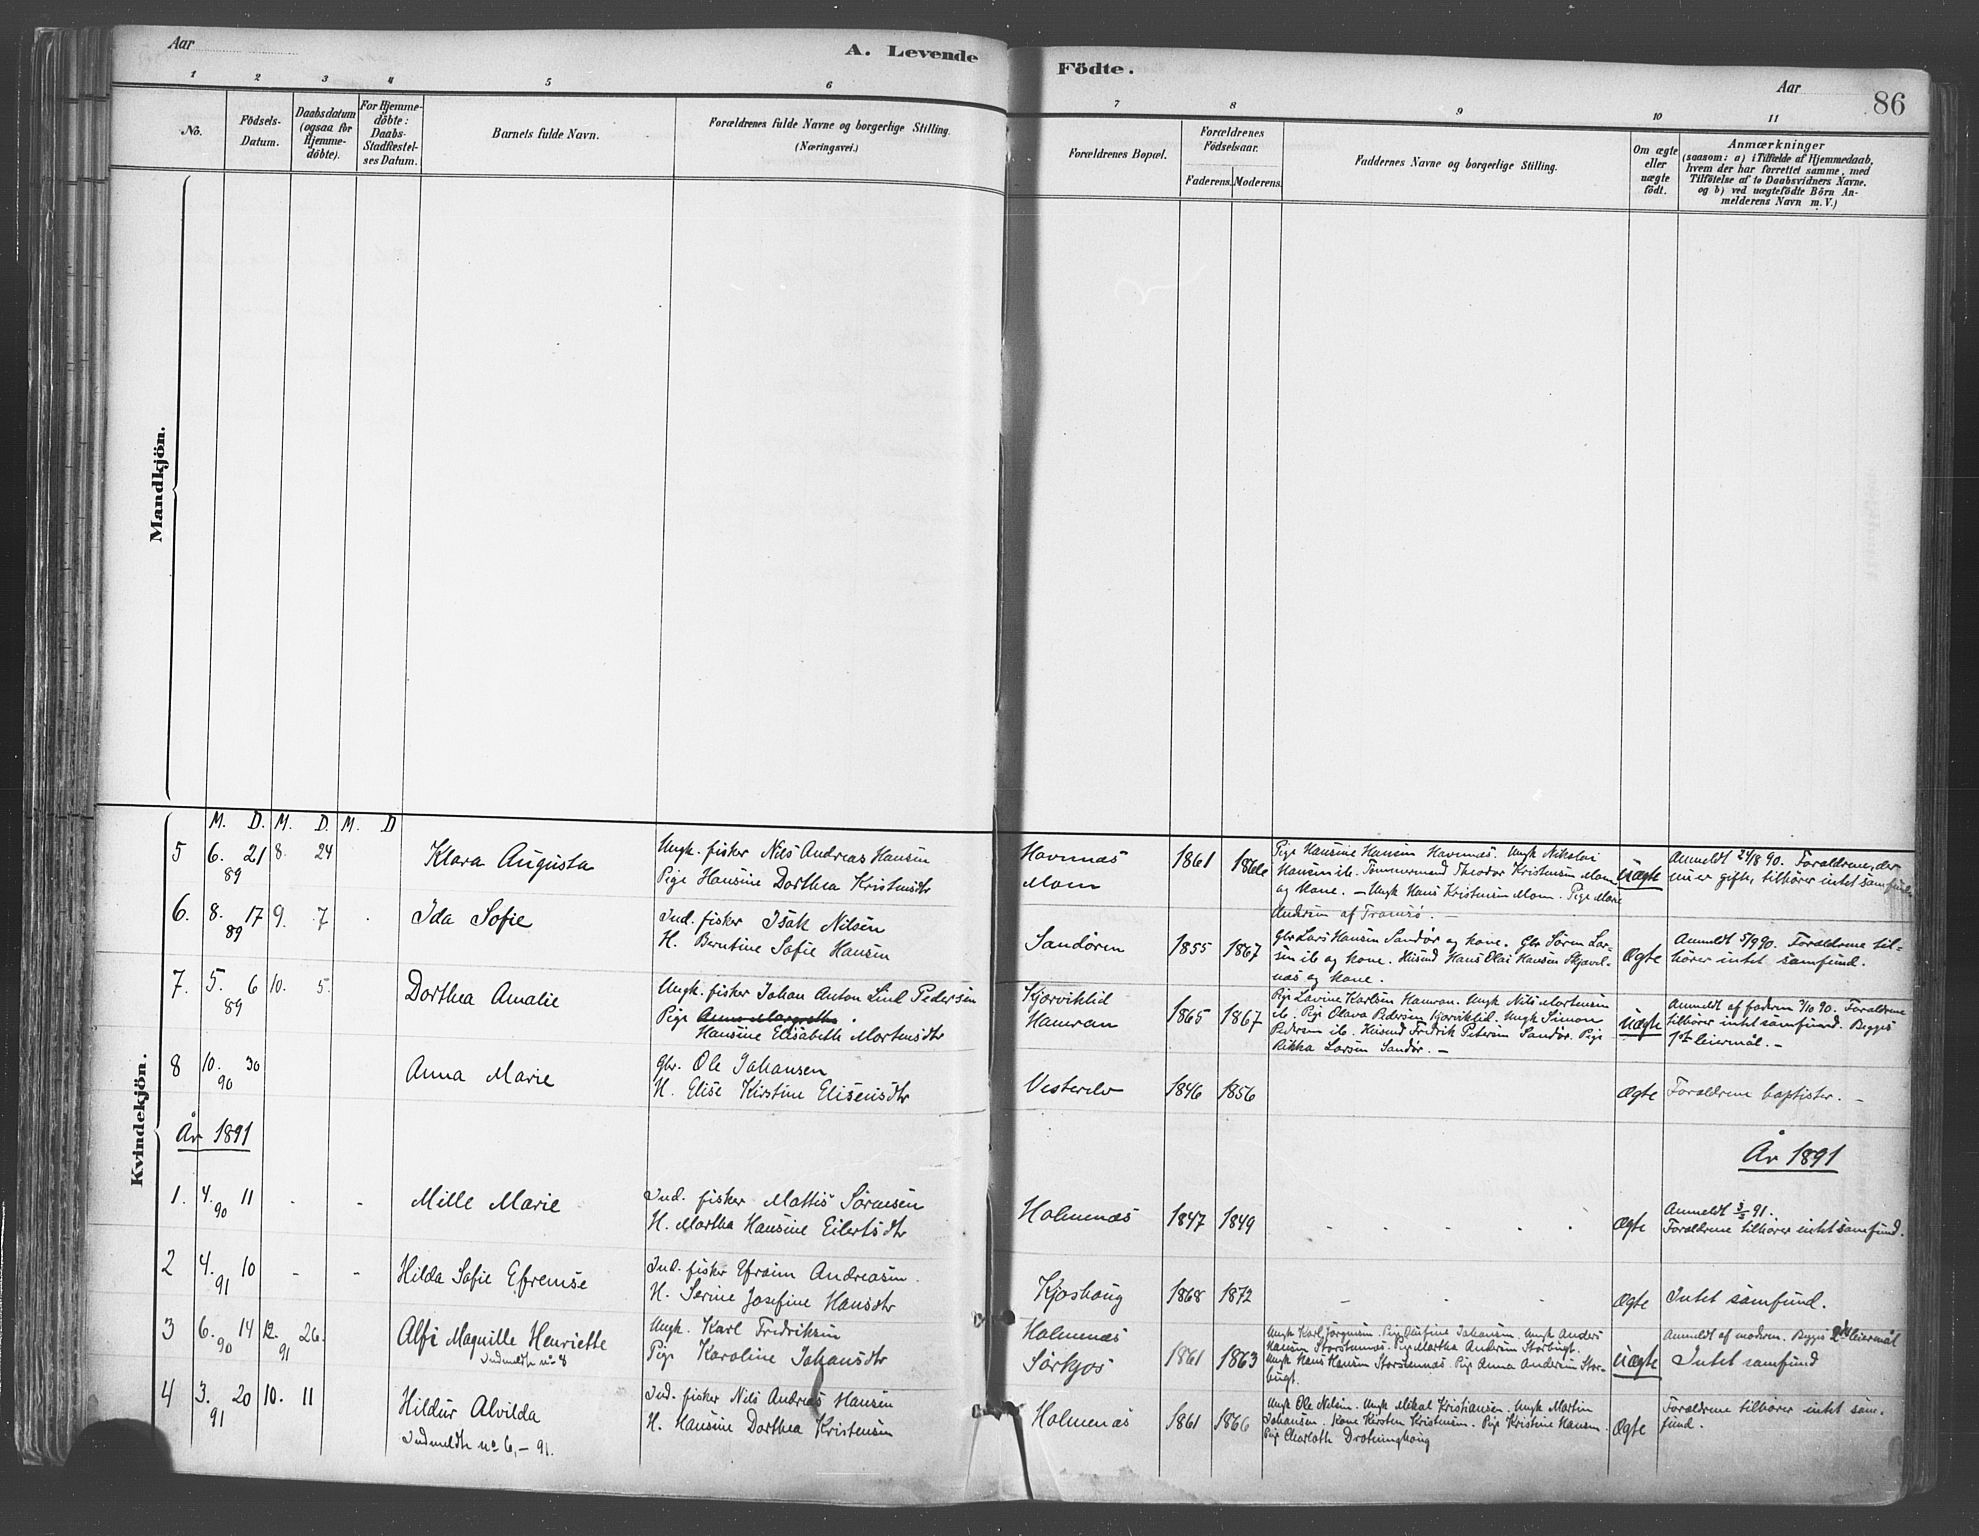 Aar
A. Levende
Födte.
Aar
86
1 2 3 4 5 6 7 8 9 10 11
No.
Födsels-
Datum.
Daabsdatum
(ogsaa for
Hjemme-
döbte).
For Hjemme-
döbte:
Daabs-
Stadfæstel-
ses Datum.
Barnets fulde Navn.
Forældrenes fulde Navne og borgerlige Stilling.
(Næringsvei.)
Forældrenes Bopæl.
Forældrenes
Födselsaar.
Faderens. Moderens.
Faddernes Navne og borgerlige Stilling.
Om ægte
eller
uægte
födt.
Anmærkninger
(saasom: a) i Tilfælde af Hjemmedaab,
hvem der har forrettet samme, med
Tilföielse af to Daabsvidners Navne,
og b) ved uægtefödte Börn An-
melderens Navn m. V.)
Mandkjön.
Kvindekjön.
M. D. M. D. M. D
5 6. 21 8. 24
89
Klara Augusta
Ungk. fisker Nils Andreas Hansen
Pige Hansine Dorthea Kristensdtr
Havnnæs
Moen
1861 1866
Pige Hansine Hansen Havnnæs. Ungk Nikolai
Hansen ib. Tømmermand Theodor Kristensen Moen
og kone. – Ungk Hans Kristensen Moen. Pige Marie
Andersen af Tromsø. –
Uægte
Anmeldt 24/8 90. Forældrene, der
nu er gifte, tilhører intet samfund.
6. 8. 17 9. 7
89
Ida Sofie
Ind. fisker Isak Nilsen
H. Berntine Sofie Hansen
Sandøren
1855 1867
Gbr Lars Hansen Sandør og kone. Gbr Søren Lar-
sen ib og kone. Husmd Hans Olai Hansen Skjævel-
næs og kone.
Ægte
Anmeldt 5/9 90. Forældrene til-
hører intet samfund.
7. 5. 6 10. 5.
89
Dorthea Amalie
Ungk. fisker Johan Anton Emil Pedersen
Pige Anna Margrethe.
Hansine Elisabeth Mortensdtr
Kjærviklid
Hamran
1865 1867
Pige Lavine Karlsen Hamran. Ungk Nils Mortensen
ib. Pige Olava Pedersen Kjærviklid. Ungk Simon
Pedersen ib. Husmd Fredrik Petersen Sandør. Pige
Rikka Larsen Sandør. –
Uægte
Anmeldt af faderen 7/10 90. Forældrene
tilhører intet samfund. Begges
1ste leiermål. –
8 10. 30
90
Anna Marie
Gbr. Ole Johansen
H. Elise Kirstine Elisensdtr
Vesterelv
1846 1856
Ægte
Forældrene baptister. –
År 1891
År 1891
1. 4. 11
90
Mille Marie
Ind. fisker Mattis Sørensen
H. Martha Hansine Eilertsdtr
Holmenæs
1847 1849
Ægte
Anmeldt 3/5 91.
Forældrene tilhører intet samfund.
2 4. 10
91
Hilda Sofie Efremse
Ind. fisker Efraim Andreasen.
H. Serine Josefine Hansdtr
Kjoshaug
1868 1872
Ægte
Intet samfund.
3 6. 14 12. 26.
90 91
Alfi Maquille Henriette
Indmeldt no 8
Ungk. Karl Fredriksen
Pige Karoline Johansdtr
Holmenæs
Sørkjos
1861 1863
Ungk Karl Jørgensen. Pige Olufine Johansen. Ungk Anders
Hansen Storstennæs. Pige Martha Andersen Storbugt.
Ungk Hans Hansen Storstennæs. Pige Anna Andersen Stor-
bugt.
Uægte
Anmeldt af moderen. Begges 2det leiermål
Intet samfund
4 3. 20 10. 11
91
Hildur Alvilda
Indmeldt no 6, – 91.
Ind. fisker Nils Andreas Hansen
H. Hansine Dorthea Kristensen
Holmenæs
1861 1866
Ungk Ole Nilsen. Ungk Mikal Kristiansen. Ungk Martin
Johansen. Kone Kirsten Kristensen. Pige Kristine Hansen.
Pige Charloth Dronninghaug
Ægte
Forældrene tilhører intet sam-
fund.